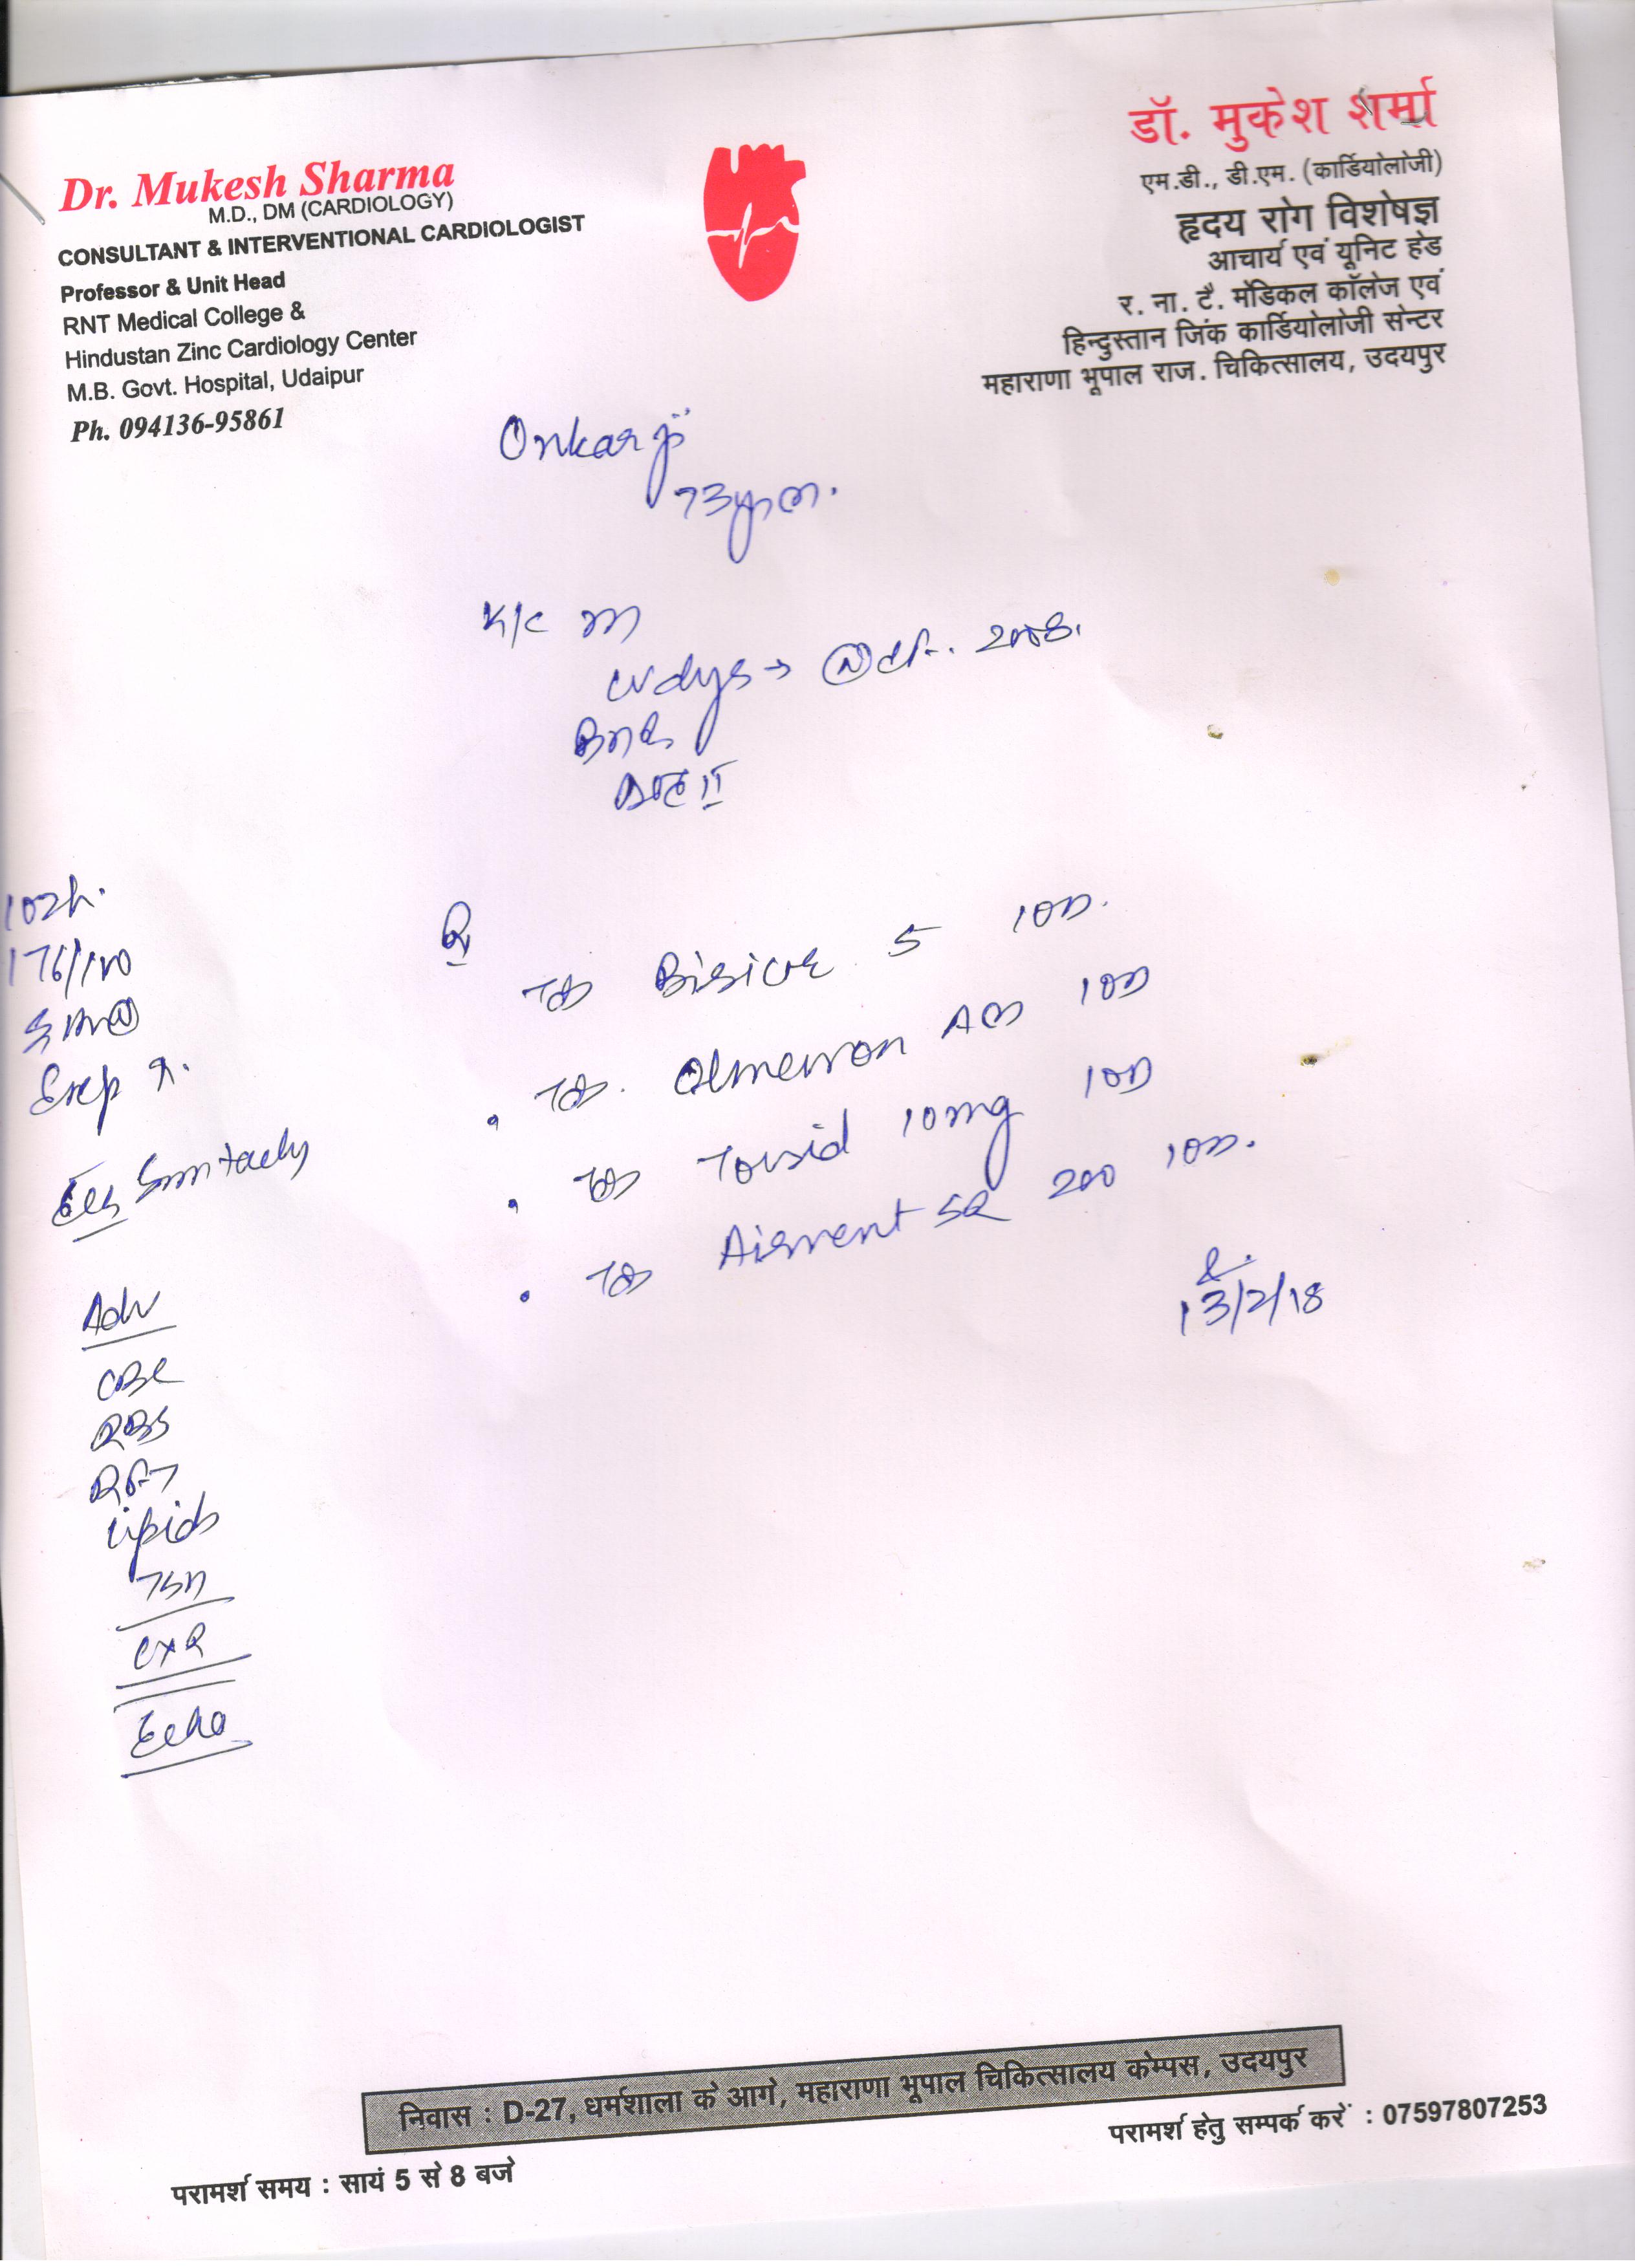 Dr. Mukesh Sharma
M.D., DM (CARDIOLOGY)
CONSULTANT & INTERVENTIONAL CARDIOLOGIST
Professor & Unit Head
RNT Medical College &
Hindustan Zinc Cardiology Center
M.B. Govt. Hospital, Udaipur
Ph. 094136-95861
डॉ. मुकेश शर्मा
एम.डी., डी.एम. (कार्डियोलोजी)
हृदय रोग विशेषज्ञ
आचार्य एवं यूनिट हेड
र. ना. टै. मेडिकल कॉलेज एवं
हिन्दुस्तान जिंक कार्डियोलोजी सेन्टर
महाराणा भूपाल राज. चिकित्सालय, उदयपुर
Onkar ji
73
K/C
LV dys → 2008.
II
176/110
Sinus tachy
Adv
CBC
RBS
RFT
Lipids
TSH
CXR
Echo
5 1OD.
Tab. AM 1OD
Tab 10mg 1OD
Tab SR 200 1OD.
13/2/18
निवास : D-27, धर्मशाला के आगे, महाराणा भूपाल चिकित्सालय केम्पस, उदयपुर
परामर्श समय : सायं 5 से 8 बजे
परामर्श हेतु सम्पर्क करें : 07597807253